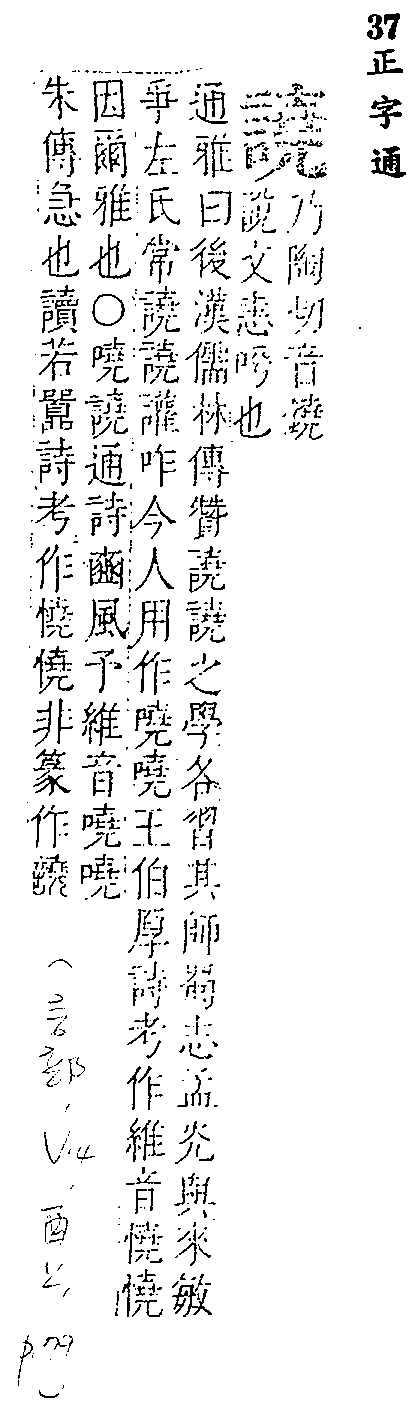 37 正字通
譊 乃陶切音鐃
說文恚呼也
通雅曰後漢儒林傳贊譊譊之學各習其師蜀志孟光與來敏
爭左氏常譊譊讙咋今人用作嘵嘵王伯厚詩考作維音憢憢
因爾雅也○嘵譊通詩豳風予維音嘵嘵
朱傳急也讀若嚻詩考作憢憢非篆作譊
(言部, V.4, 酉上, p.79)